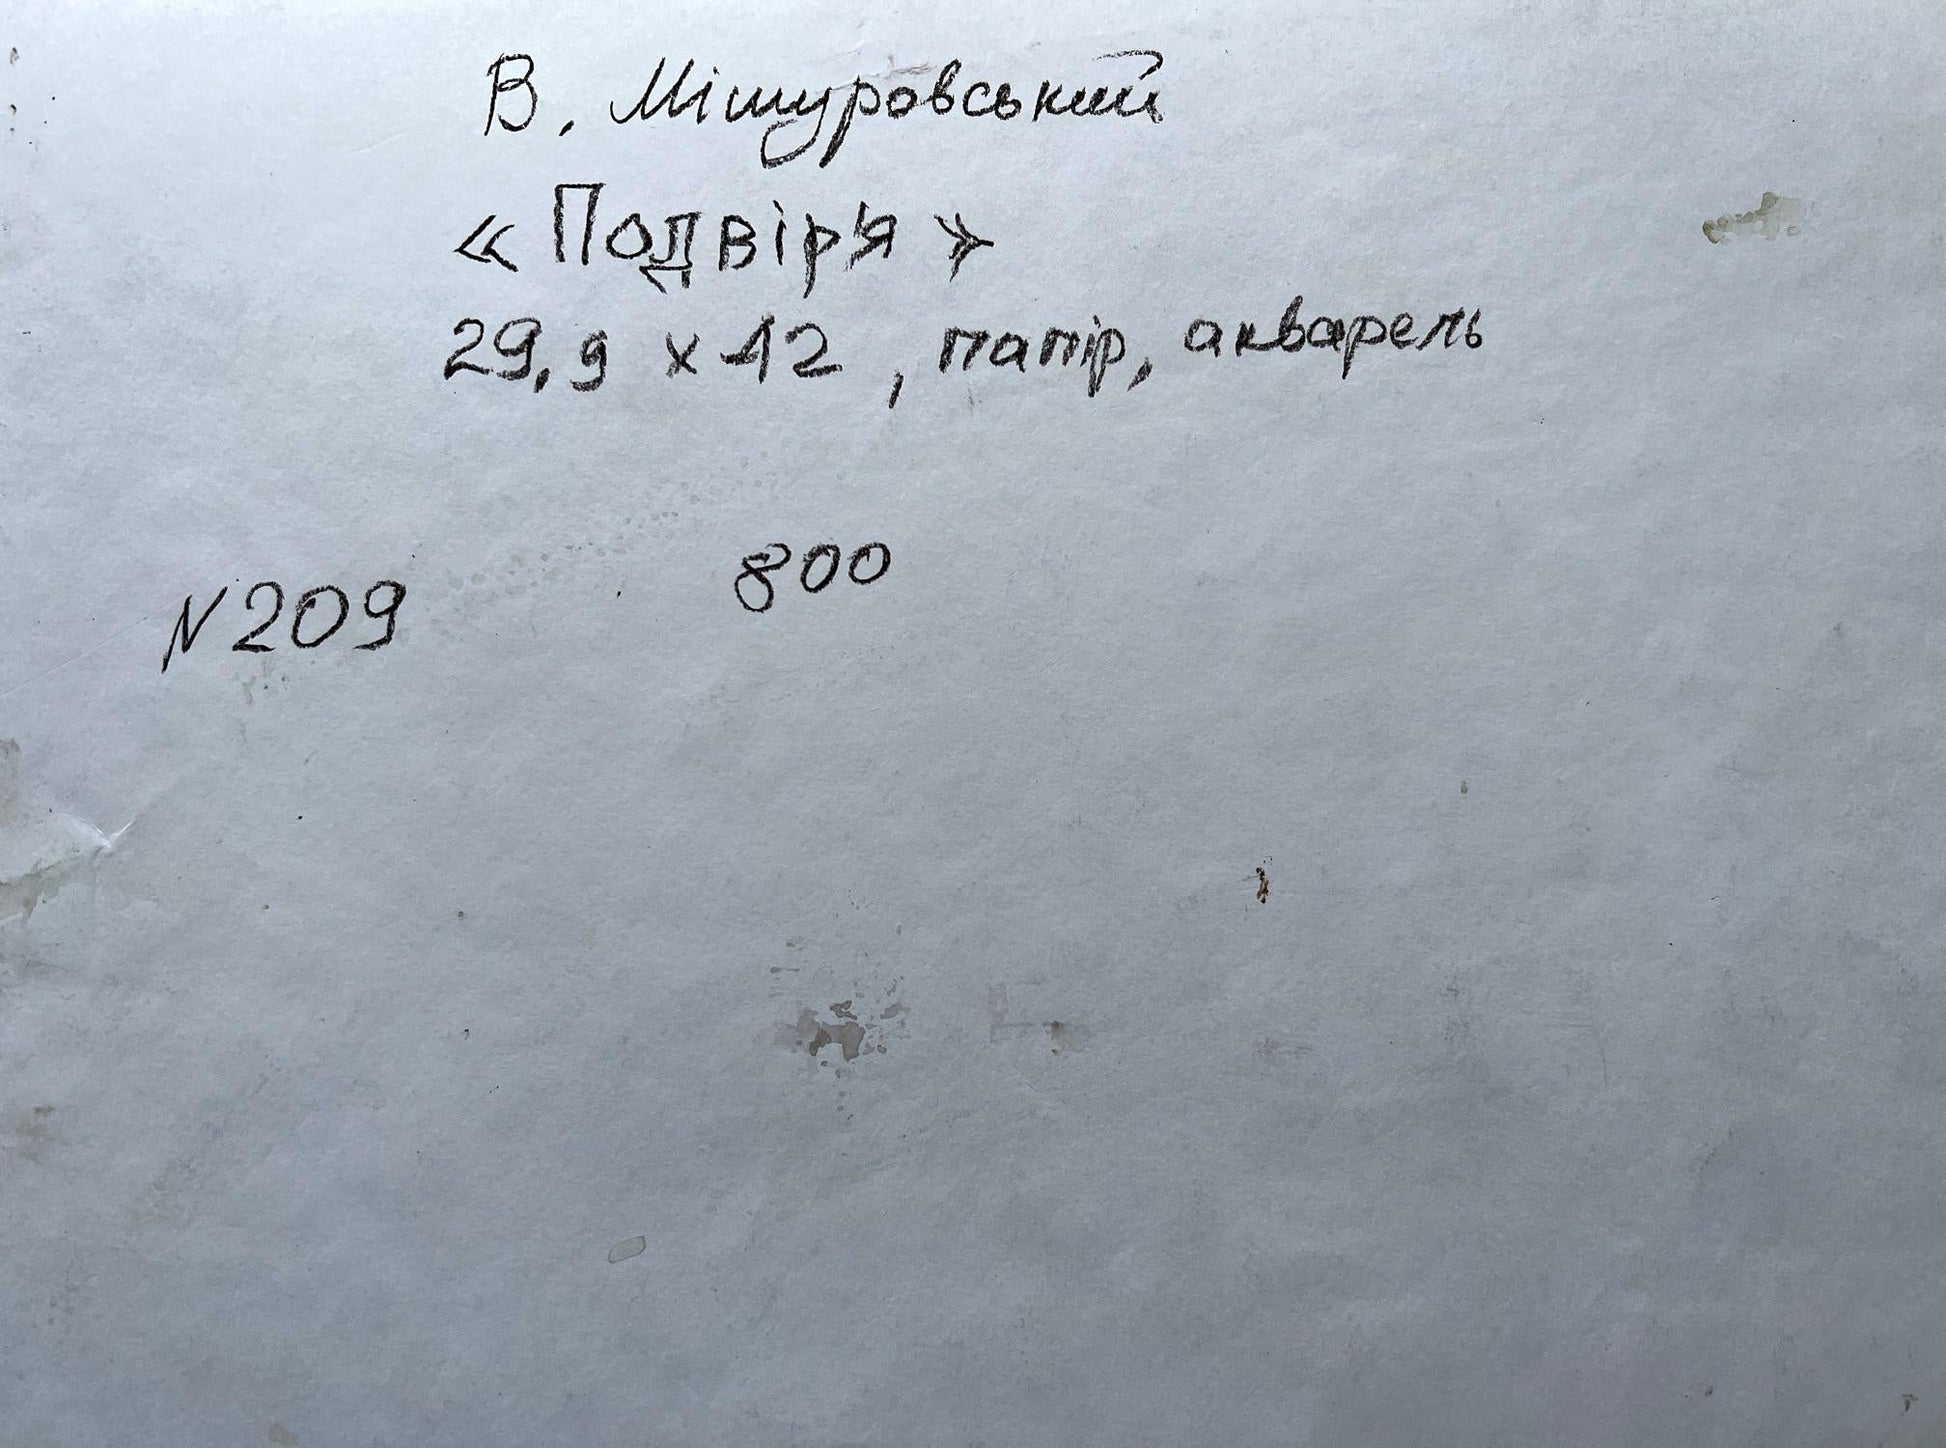 В. Мішуровський
«Подвір'я»
29,9 х 42, папір, акварель
800
N209